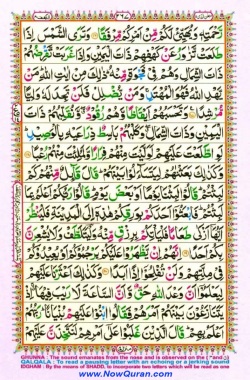 رَحْمَتِهٖ وَیُهَیِّئْ لَكُمْ مِّنْ اَمْرِكُمْ مِّرْفَقًا وَتَرَی الشَّمْسَ اِذَا
طَلَعَتْ تَّزٰوَرُ عَنْ كَهْفِهِمْ ذَاتَ الْیَمِیْنِ وَاِذَا غَرَبَتْ تَّقْرِضُهُمْ
ذَاتَ الشِّمَالِ وَهُمْ فِیْ فَجْوَةٍ مِّنْهُ ذٰلِكَ مِنْ اٰیٰتِ اللّٰهِ مَنْ
یَّهْدِ اللّٰهُ فَهُوَ الْمُهْتَدِ وَمَنْ یُّضْلِلْ فَلَنْ تَجِدَ لَهٗ وَلِیًّا
مُّرْشِدًا وَتَحْسَبُهُمْ اَیْقَاظًا وَّهُمْ رُقُوْدٌ وَّنُقَلِّبُهُمْ ذَاتَ
الْیَمِیْنِ وَذَاتَ الشِّمَالِ وَكَلْبُهُمْ بَاسِطٌ ذِرَاعَیْهِ بِالْوَصِیْدِ
لَوِ اطَّلَعْتَ عَلَیْهِمْ لَوَلَّیْتَ مِنْهُمْ فِرَارًا وَّلَمُلِئْتَ مِنْهُمْ رُعْبًا
وَكَذٰلِكَ بَعَثْنٰهُمْ لِیَتَسَآءَلُوْا بَیْنَهُمْ قَالَ قَآئِلٌ مِّنْهُمْ كَمْ
لَبِثْتُمْ قَالُوْا لَبِثْنَا یَوْمًا اَوْ بَعْضَ یَوْمٍ قَالُوْا رَبُّكُمْ اَعْلَمُ بِمَا
لَبِثْتُمْ فَابْعَثُوْۤا اَحَدَكُمْ بِوَرِقِكُمْ هٰذِهٖۤ اِلَی الْمَدِیْنَةِ فَلْیَنْظُرْ
اَیُّهَاۤ اَزْكٰی طَعَامًا فَلْیَاْتِكُمْ بِرِزْقٍ مِّنْهُ وَلْیَتَلَطَّفْ وَلَا یُشْعِرَنَّ
بِكُمْ اَحَدًا اِنَّهُمْ اِنْ یَّظْهَرُوْا عَلَیْكُمْ یَرْجُمُوْكُمْ اَوْ یُعِیْدُوْكُمْ
فِیْ مِلَّتِهِمْ وَلَنْ تُفْلِحُوْۤا اِذًا اَبَدًا وَكَذٰلِكَ اَعْثَرْنَا عَلَیْهِمْ
لِیَعْلَمُوْۤا اَنَّ وَعْدَ اللّٰهِ حَقٌّ وَّاَنَّ السَّاعَةَ لَا رَیْبَ فِیْهَا اِذْ
یَتَنَازَعُوْنَ بَیْنَهُمْ اَمْرَهُمْ فَقَالُوا ابْنُوْا عَلَیْهِمْ بُنْیَانًا رَبُّهُمْ
اَعْلَمُ بِهِمْ قَالَ الَّذِیْنَ غَلَبُوْا عَلٰۤی اَمْرِهِمْ لَنَتَّخِذَنَّ عَلَیْهِمْ
GHUNNA : The sound emanates from the nose and is observed on the
QALQALA : To read a pausing letter with an echoing or a jerking sound
IDGHAM : By the means of SHADD, to incorporate two letters which one letter is not read
www.NowQuran.com